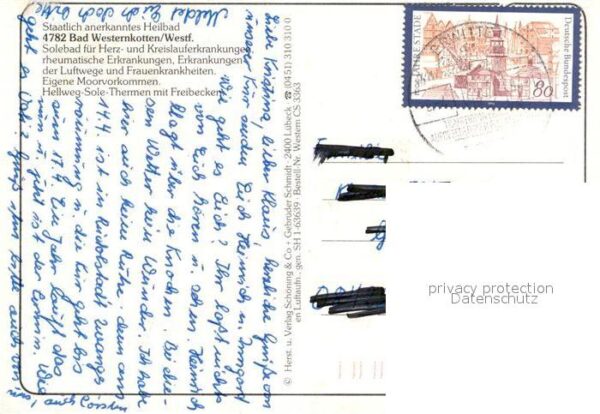 Staatlich anerkanntes Heilbad
4782 Bad Westernkoten/Westf.
Solebad für Herz- und Kreislauferkrankungen,
rheumatische Erkrankungen, Erkrankungen
der Luftwege und Frauenkrankheiten.
Eigene Moorvorkommen.
Hellweg-Sole-Thermen mit Freibecken
Liebe Kristina, lieber Klaus, herzliche Grüße von
unserer Kur senden Euch Heinrich u. Irmgard
Wie geht es Euch? Ihr laßt nichts
von Euch hören u. sehen. Heinrich
klagt über die Knochen. Bei die-
sem Wetter kein Wunder. Ich habe
hier auch keine Ruhe, denn am
14.4. ist in Rudolstadt Zwangs
räumung u. die Kur geht bis
zum 17.4. Ein Jahr läuft das
nun u. jetzt ist der Termin. Wie
geht es
Meldet Euch doch bitte
© Herst. u. Verlag Schöning & Co + Gebrüder Schmidt · 2400 Lübeck ☎ (0451) 310 310 0
en Luftaufn. gen. SH 1-63639 · Bestell-Nr. Western CS 3363
Deutsche Bundespost
80
privacy protection
Datenschutz